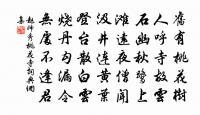 舊有桃花樹
人呼寺故云
石幽秋鷺上
灘遠夜僧聞
汲井連黃葉
登台散白雲
燒丹勾漏令
無處不逢君
趙師秀桃花寺詞典網
集